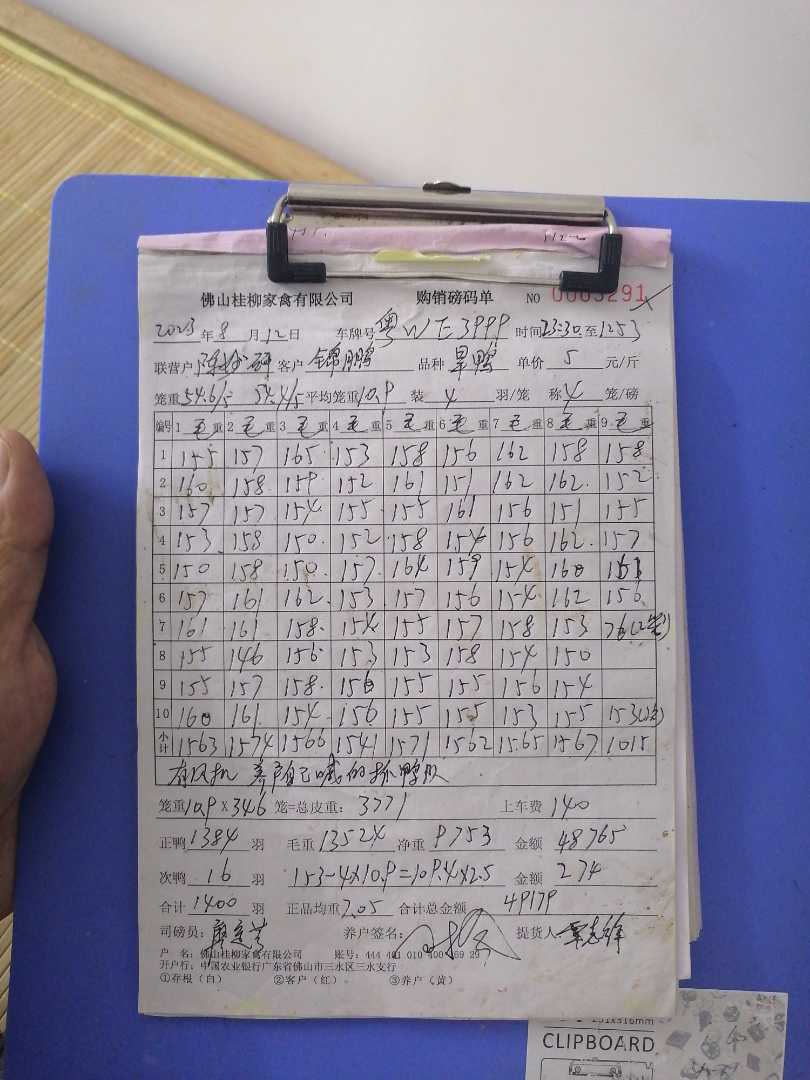 佛山桂柳家禽有限公司 购销磅码单 NO 0003291
2023年8月12日 车牌号 粤WE3999 时间23:30至1253
联营户 客户 锦鹏 品种 旱鸭 单价 5 元/斤
笼重54.6/5 54.4/5 平均笼重10.9 装 4 羽/笼 称 4 笼/磅
编号 1 毛重 2 毛重 3 毛重 4 毛重 5 毛重 6 毛重 7 毛重 8 毛重 9 毛重
1 155 157 165 153 158 156 162 158 158
2 160 158 159 152 161 151 162 162 152
3 157 157 154 155 155 161 156 151 155
4 153 158 150 152 158 154 156 162 157
5 150 158 150 157 164 159 154 160 161
6 157 161 162 153 157 156 154 162 156
7 161 161 158 154 155 157 158 153 76(2笼)
8 155 146 156 153 153 158 154 150
9 155 157 158 156 155 155 156 154
10 160 161 154 156 155 155 153 155 153
小计 1563 1574 1566 1541 1571 1562 1565 1567 1015
有风机 养户自己喊的抓鸭队
笼重10.9×346 笼=总皮重: 3771 上车费 140
正鸭 1384 羽 毛重 13524 净重 9753 金额 48765
次鸭 16 羽 153-4×10.9=109.4×2.5 金额 274
合计 1400 羽 正品均重 7.05 合计总金额 49179
司磅员: 养户签名: 提货人
户 名: 佛山桂柳家禽有限公司 账号: 444 401 010 400 69 29
开户行: 中国农业银行广东省佛山市三水区三水支行
①存根(白) ②客户(红) ③养户(黄)
251X316mm
CLIPBOARD